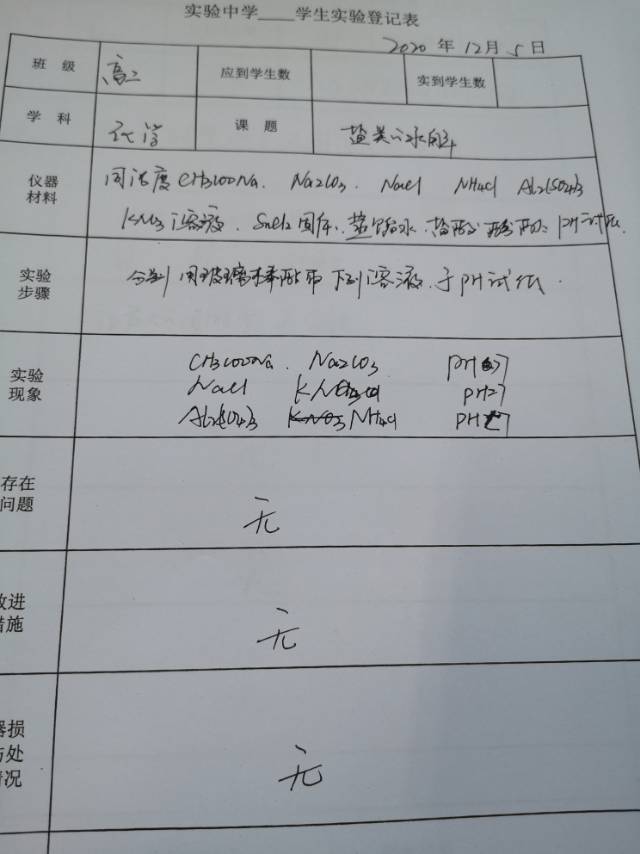 实验中学____学生实验登记表
2020 年 12月 5 日
班 级 高二 应到学生数 实到学生数
学 科 化学 课 题 盐类的水解
仪器 同浓度 CH3COONa. Na2CO3. NaCl NH4Cl Al2(SO4)3
材料 KNO3溶液. SnCl2固体. 蒸馏水. 盐酸. 酚酞. pH试纸.
实验 分别用玻璃棒蘸取下列溶液.于pH试纸.
步骤
CH3COONa. Na2CO3 PH>7
实验 NaCl KNO3 PH=7
现象 Al2(SO4)3 KNO3 NH4Cl PH<7
存在
问题 无
改进
措施 无
器损
与处 无
情况